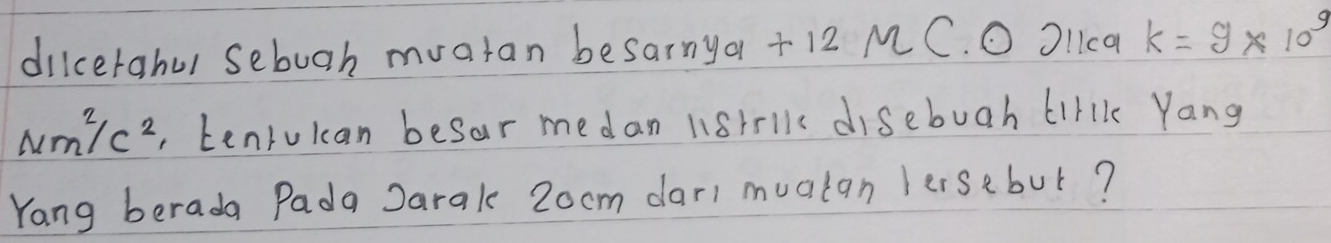 diketahui sebuah muatan besarnya + 12 MC. Jika k = 9 x 10⁹
Nm²/c², tentukan besar medan listrik disebuah titik Yang
Yang berada Pada Jarak 20cm dari muatan tersebut ?